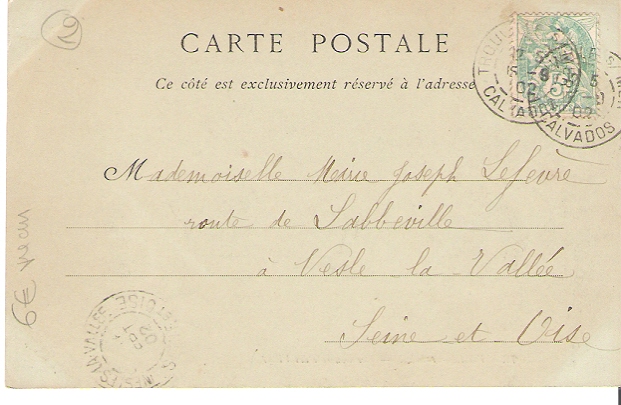 2
CARTE POSTALE
Ce côté est exclusivement réservé à l'adresse
TROU
CALVADOS
02
5
CALVADOS
02
Mademoiselle Marie Joseph Lefevre
route de Labbeville
à Nesle la Vallée
Seine et Oise
6€
NESLES-LA-VALLEE
OISE
02